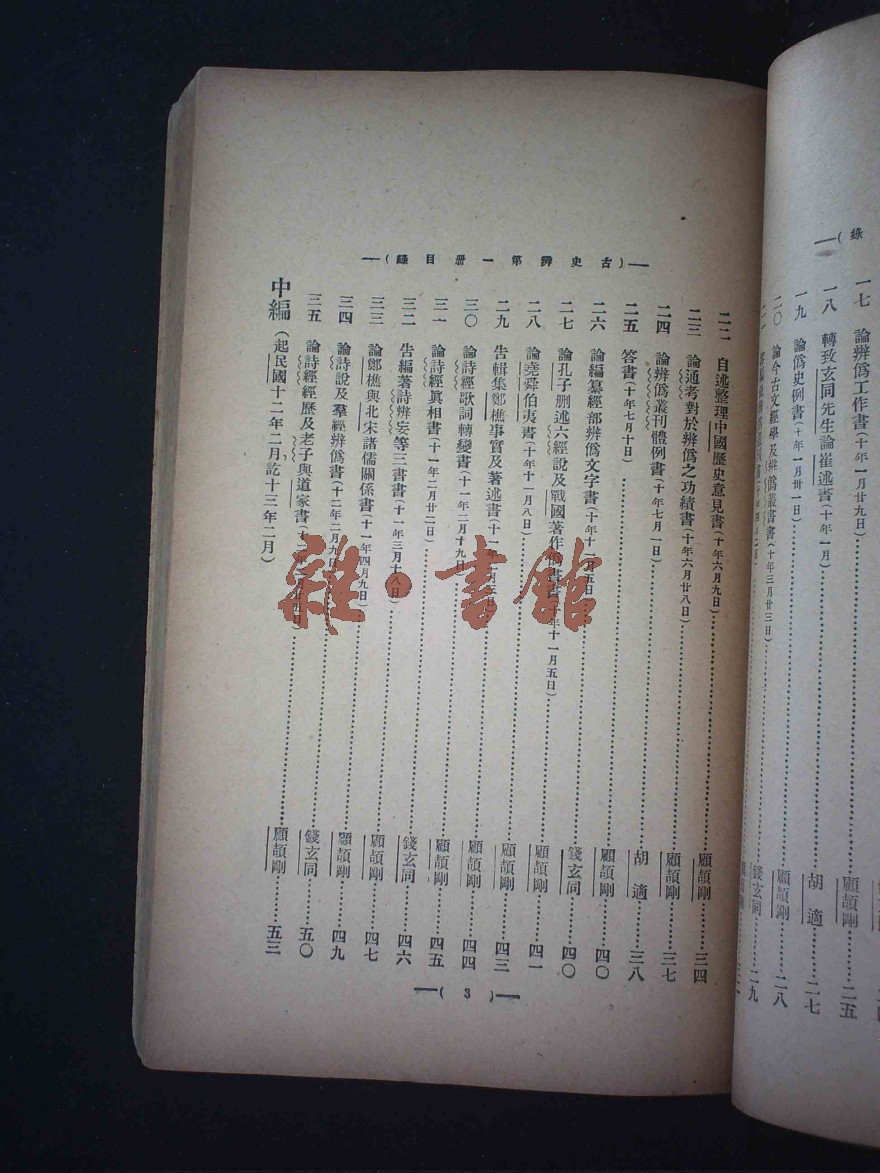 錄)—
一七　論辨僞工作書(十年一月廿九日)……顧頡剛……二五
一八　轉致玄同先生論崔述書(十年一月)……胡　適……二七
一九　論僞史例書(十年一月卅一日)……顧頡剛……二八
二〇　論今古文經學及辨僞叢書書(十年三月廿三日)……錢玄同……二九
—(古史辨第一册目錄)—
二二　自述整理中國歷史意見書(十年六月九日)……顧頡剛……三四
二三　論通考對於辨僞之功績書(十年六月廿八日)……顧頡剛……三七
二四　論辨僞叢刊體例書(十年七月一日)……胡　適……三八
二五　答書(十年七月十日)……顧頡剛……四〇
二六　論編纂經部辨僞文字書(十年十一月五日)……錢玄同……四〇
二七　論孔子删述六經說及戰國著作僞書書(十年十一月五日)……顧頡剛……四一
二八　論堯舜伯夷書(十年十一月八日)……顧頡剛……四三
二九　告輯集鄭樵事實及著述書(十一年……顧頡剛……四四
三〇　論詩經歌詞轉變書(十一年二月十九日)……顧頡剛……四五
三一　論詩經眞相書(十一年二月廿二日)……錢玄同……四六
三二　告編著詩辨妄等三書書(十一年三月十八日)……顧頡剛……四七
三三　論鄭樵與北宋諸儒關係書(十一年四月九日)……顧頡剛……四九
三四　論詩說及羣經辨僞書(十二年二月九日)……錢玄同……五〇
三五　論詩經經歷及老子與道家書……顧頡剛……五三
中編(起民國十二年二月訖十三年二月)
—(3)—
雜·書館